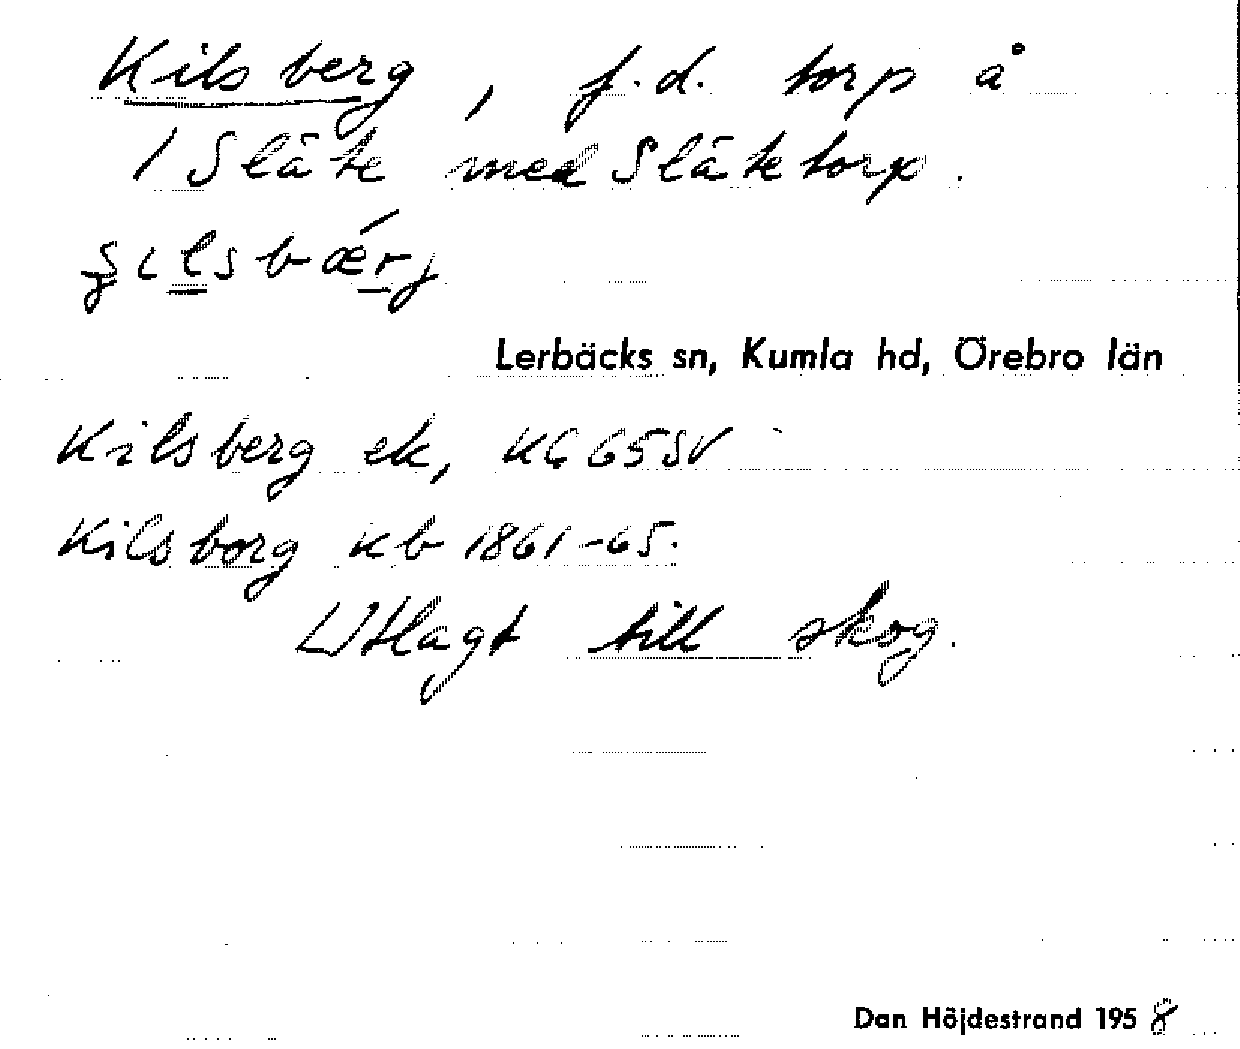 Kilsberg, f.d. torp å
1 Släte med Slätetorp.
Lerbäcks sn, Kumla hd, Örebro län
Kilsberg ek, KG 65SV
Kilsborg kb 1861-65.
Utlagt till skog.
Dan Höjdestrand 1958